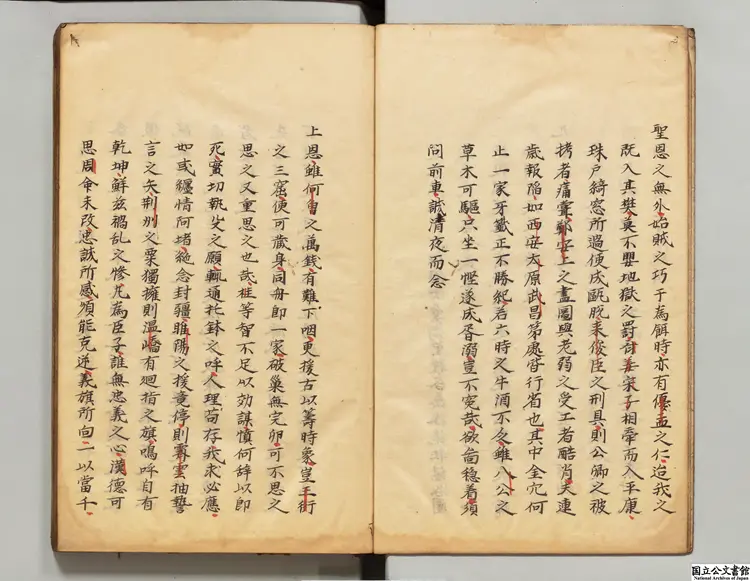 聖恩之無外始賊之巧于為餌時亦有優孟之仁迨我之
既入其樊莫不嬰地獄之罰子相牽而入平康
珠戶綺窓所過便成甌脫来俊臣之刑具則公卿之被
拷者痛鄭安上之畫圖與老弱之受工者酷肖夫連
歲報陷如西安太原武昌荊處皆行省也其中全完何
止一家牙籤正不勝紀若六時之牛酒不久雖八公之
草木可驅只坐一慳遂成胥溺豈不寃哉欲圖穩着須
問前車誠清夜而念
上恩雖何曾之萬錢有難下咽更援古以籌時象豈王衍
之三窟便可藏身同舟即一家破巢無完卵可不思之
思之又重思之也哉桂等智不足以効謀憤何辞以即
死蜜切執殳之願輒通托鉢之呼人理苟存我求必應
如或纏情阿堵絕念封疆雎陽之援竟停則霽雲抽誓
言之矢荆州之粟獨擁則溫嶠有廻指之旗嗚呼自有
乾坤鮮兹禍乱之慘凢為臣子誰無忠義之心漢德可
思周命未改忠誠所感頑能克逆義旗所向一以當千
国立公文書館
National Archives of Japan